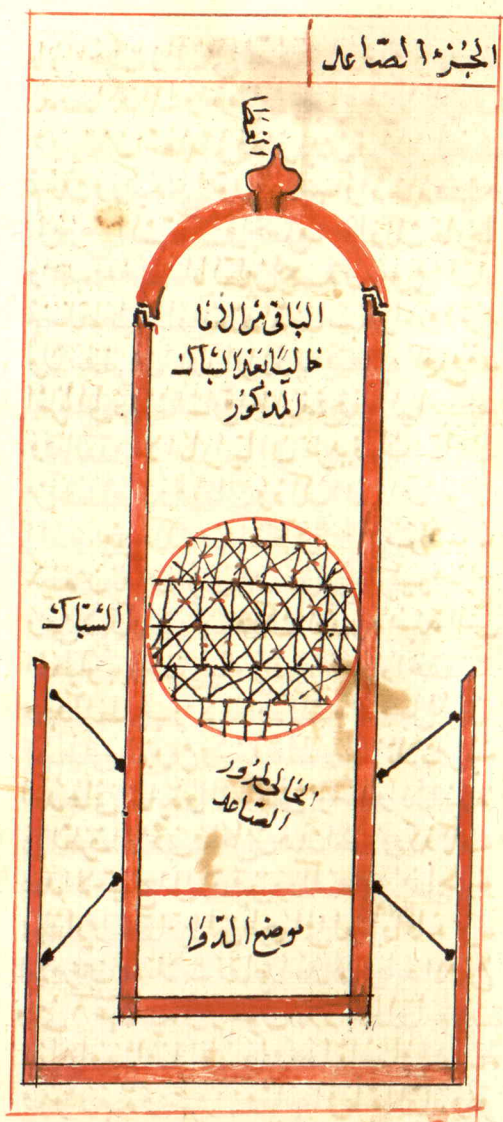 الجزء الصاعد
الغطا
الباقي من الانا
خاليا بعد الشباك
المذكور
الشباك
الخالي لمرور
الصاعد
موضع الدوا